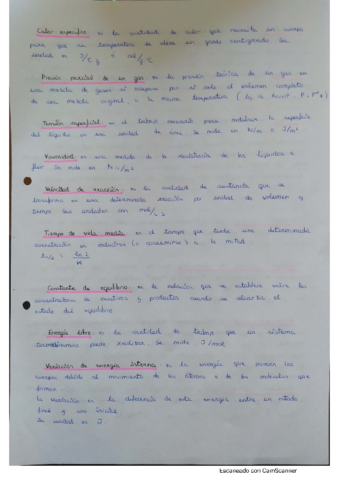 Calor específico es la cantidad de calor que necesita un cuerpo
para que su temperatura se eleve un grado centígrado. Su
unidad es J/°C g o cal/°C g
Presión parcial de un gas es la presión teórica de un gas en
una mezcla de gases si ocupara por sí solo el volumen completo
de una mezcla original a la misma temperatura (
Tensión superficial es el trabajo necesario para
del líquido en una unidad de área. Se mide en N/m o J/m²
Viscosidad es una medida de la resistencia de los líquidos a
fluir. Se mide en
Velocidad de reacción es la cantidad de sustancia que se
transforma en una determinada reacción por unidad de volumen y
tiempo. Sus unidades son mol/L s
Tiempo de vida media es el tiempo que tarda una determinada
concentración en reducirse (o consumirse) a la mitad.
t₁/₂ = ln 2 / K
Constante de equilibrio es la relación que se establece entre las
concentraciones de reactivos y productos cuando se alcanza el
estado del equilibrio
Energía libre es la cantidad de trabajo que un sistema
termodinámico puede realizar. Se mide J/mol
Variación de energía interna es la energía que poseen los
cuerpos debido al movimiento de los átomos o de las moléculas que
forman
La variación es la diferencia de esta energía entre un estado
final y uno inicial
Su unidad es J.
Escaneado con CamScanner